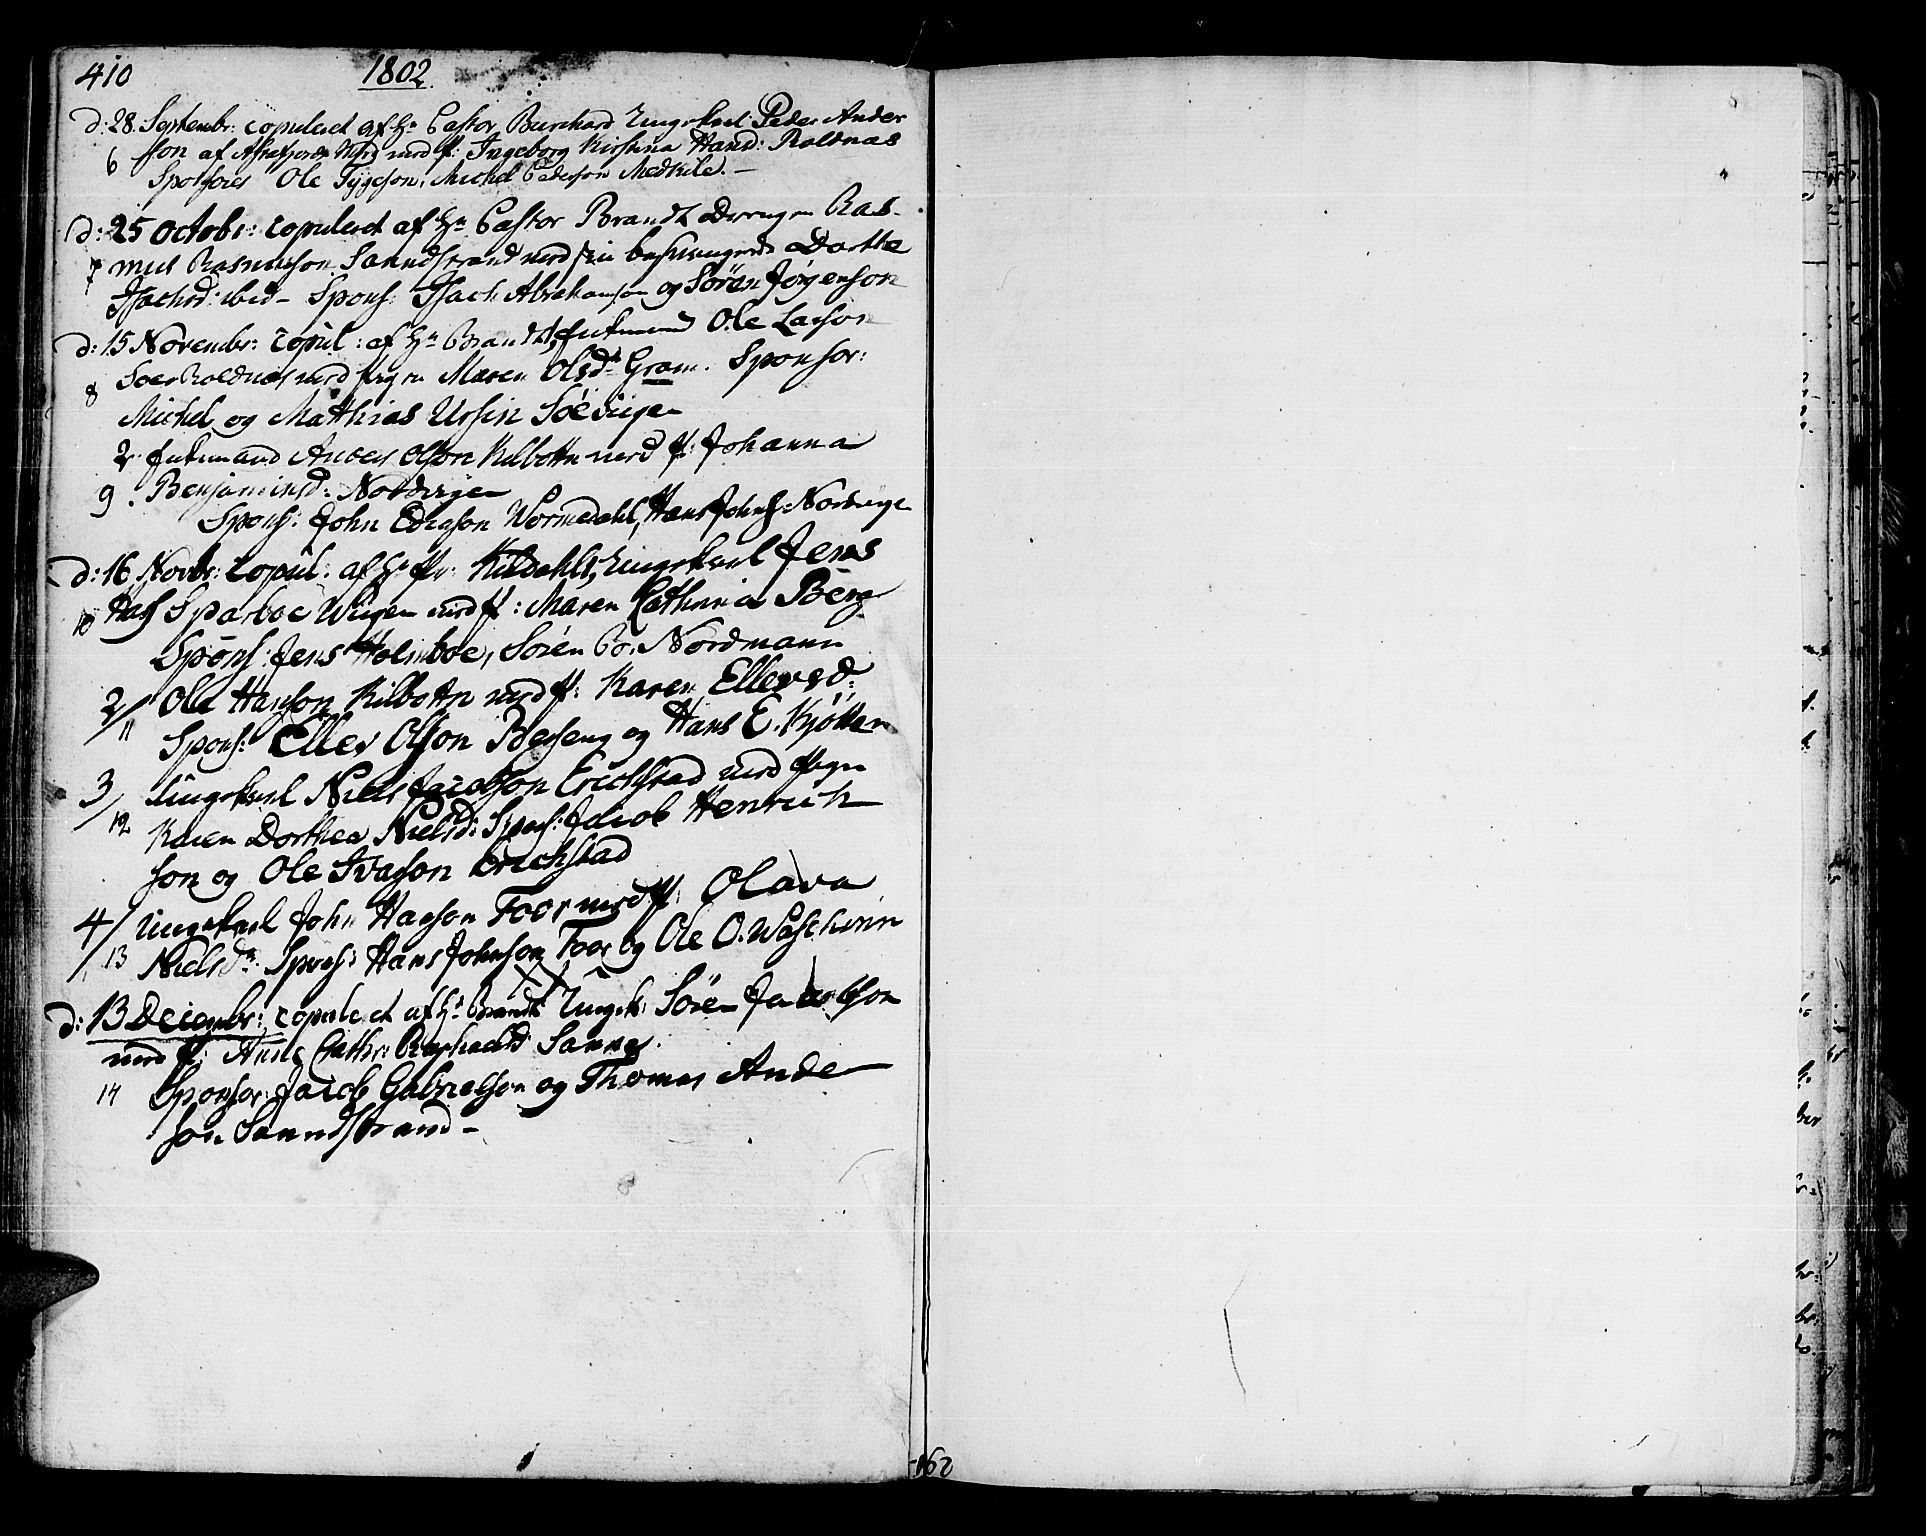 410 1802
d: 28. Septembr: copuleret af Hr Pastor Burchard Ungekarl Peder Ander
6 sson af Astafjords med f: Ingeborg Kirstina Hansd: Roldnæs
Sponsores Ole Tygeson, Michel Pederson Medkile. —
d: 25 Octobr: copuleret af Hr Pastor Brandt Drengen Ras-
7 mus Rasmuson Sanndstrand med sin besvangrede Dorthe
Isachsd: ibid — Spons: Isach Abrahamson og Sören Jørgenson
d: 15 Novembr: copul: af Hr Brandt, Enkemand Ole Larson
8 Roldnæs med Pigen Maren Olsdr Gram. Sponsor:
Michel og Matthias Ursin Söevigen
2. Enkemand Anders Olson Kilbottn med f: Johanna
9. Benjaminsd: Nordvigen
Spons: John Edisson Wormedahl, Hans Johns: Nordvigen
d: 16 Novbr: copul: af Hr Kildahl, Ungekarl Jens
10 Hass Sparboe Wiigen med f: Maren Cathrina Berg
Spons: Jens Holmboe, Sören Nordmann
2/ Ole Hanson Kilbottn med f: Karen Ellersd:
11 Spons: Eller Olson Berseng og Hans E. Kjötten
3/ Ungekarl Niels Jacobson Erichstad med Pigen
12 Karen Dorthea Nielsd: Spons: Jacob Henrich
son og Ole Ivarson Erichstad
4/ Ungekarl John Hanson Foor med f: Olava
13 Nielsdr. Spons: Hans Johnson Foor og Ole O.
d: 13 Decembr: copuleret af Hr Brandt Ungek: Sören Jacobson
med f: Anne Cathr: Sannd.
14 Sponsor: Jacob Gabrielson og Thomas Ander
son Sanndstrand —
162